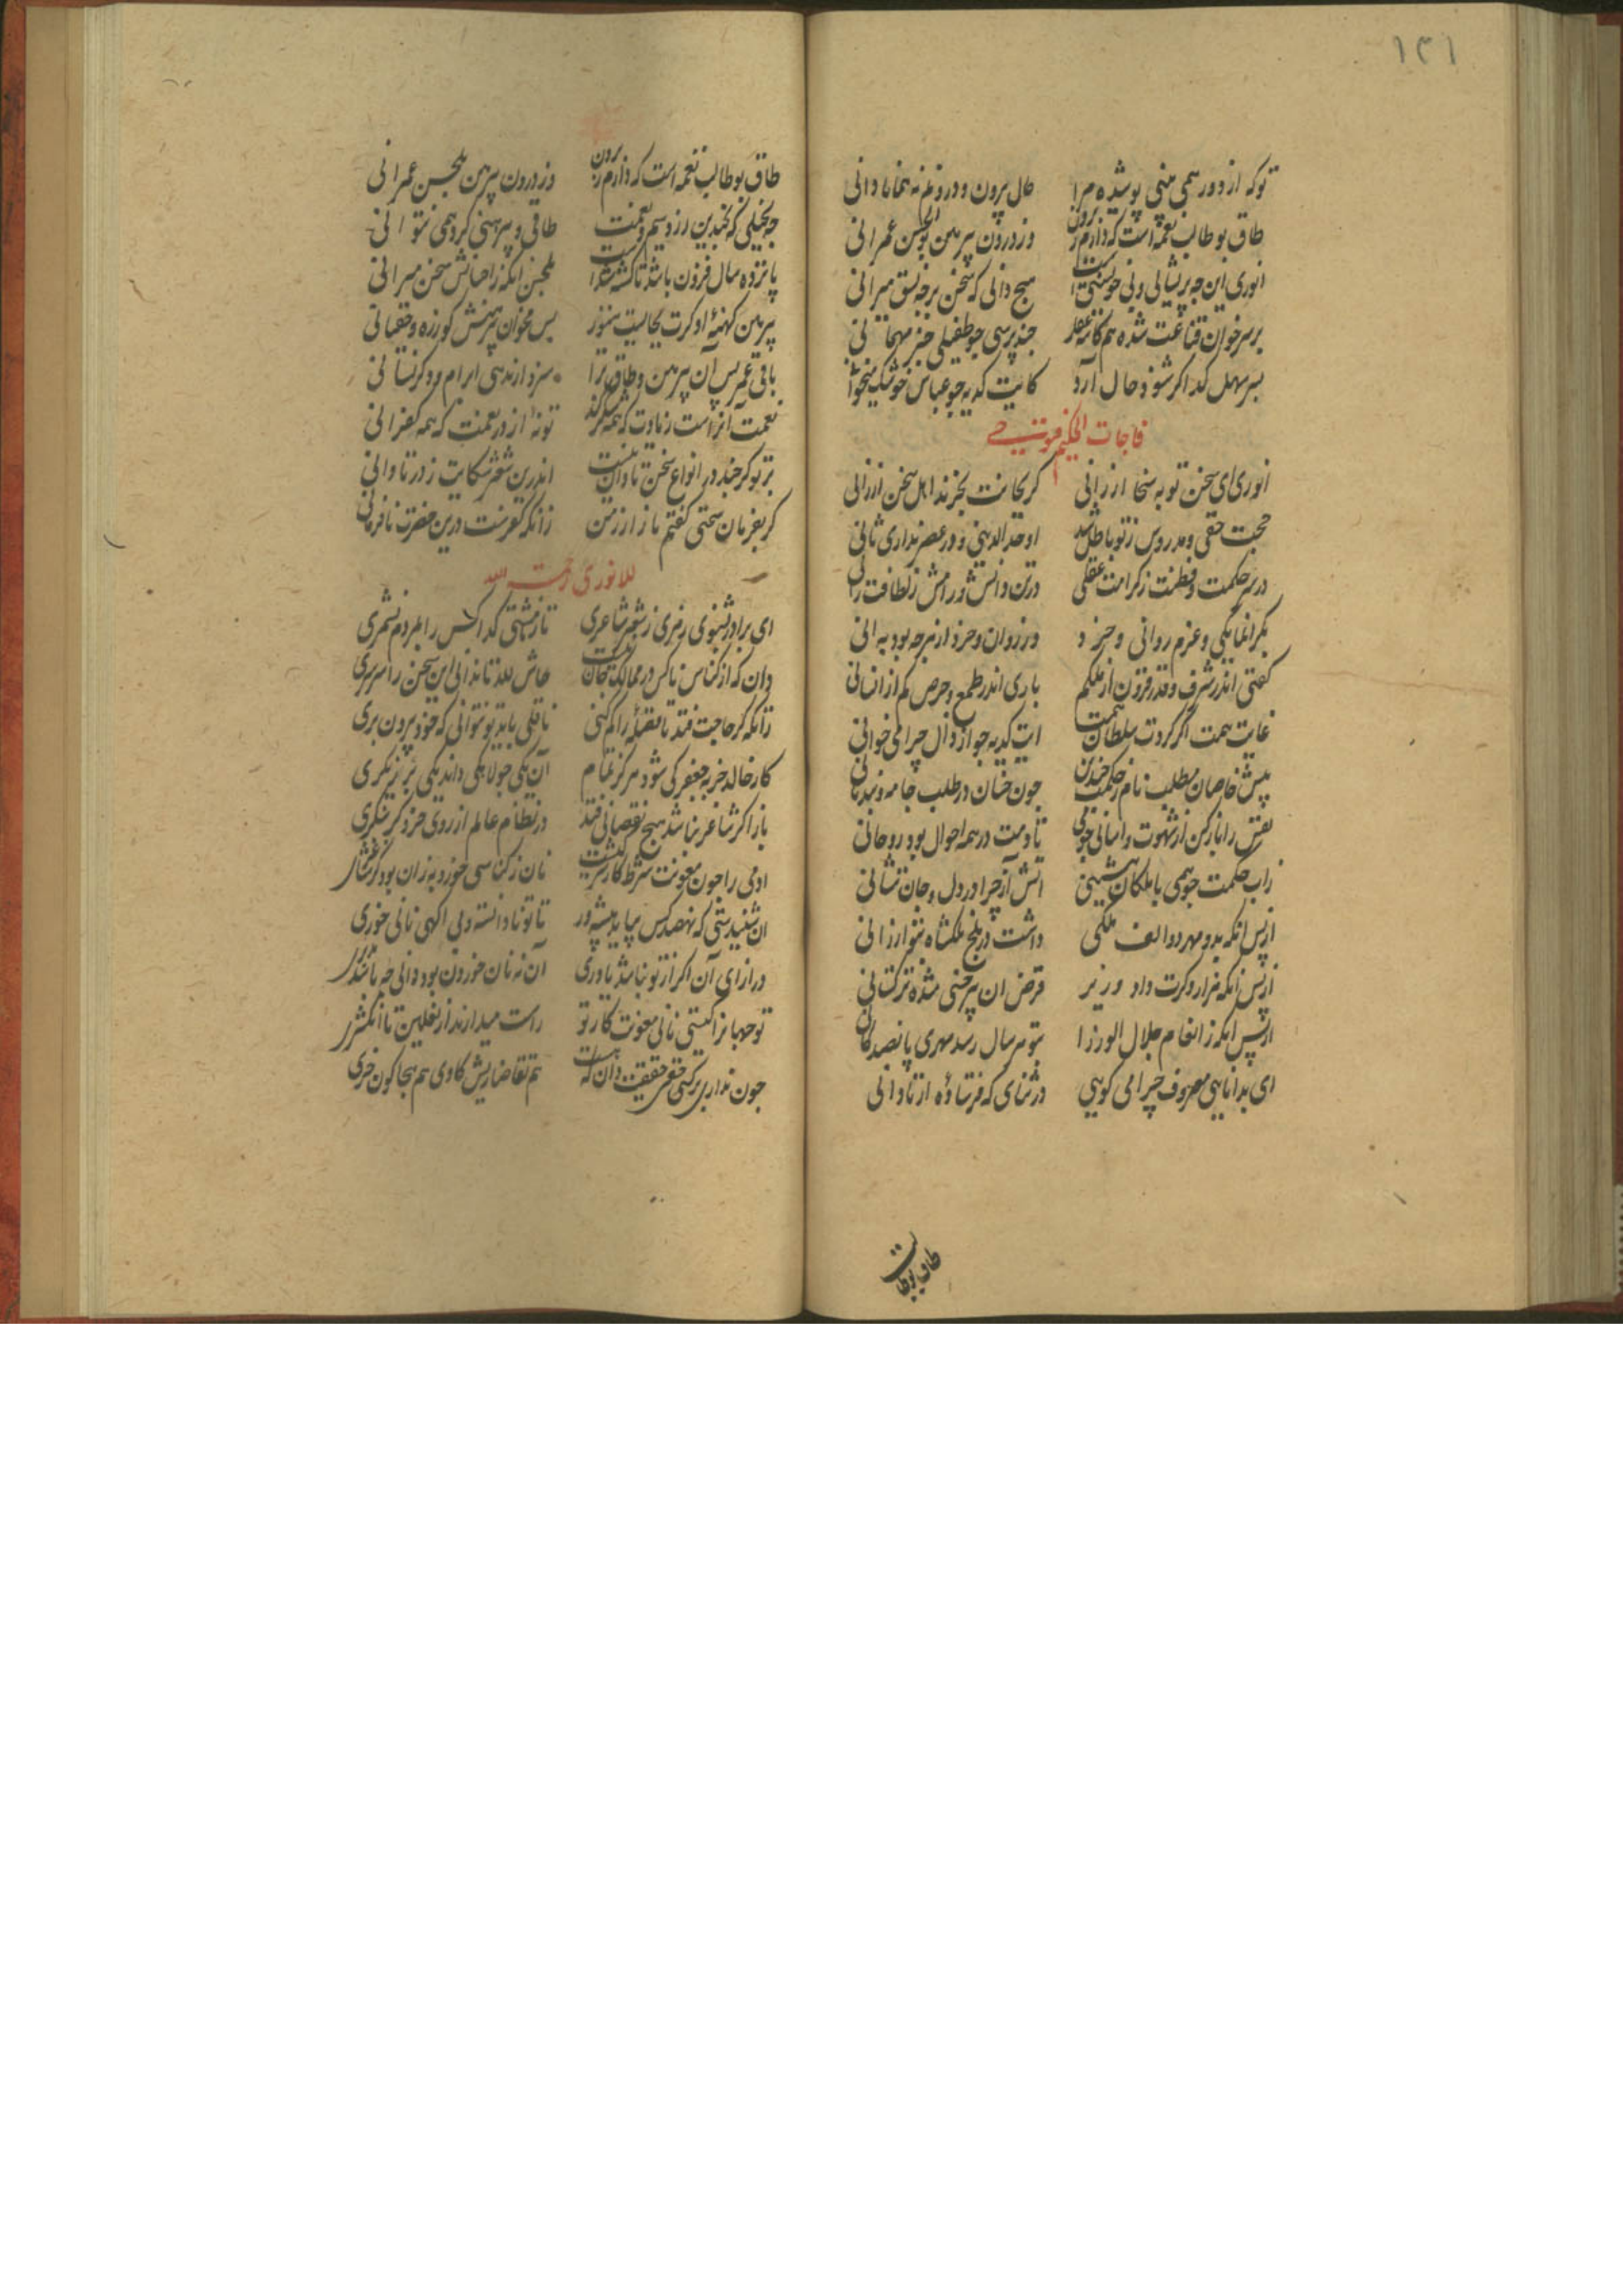 ۱۳۱
تو که از دور همی بینی پوشیده مرا حال بیرون و درونم نه همانا دانی
طاق بوطالب نعمه است که دارم ز برون وز درون پیرهن بوالحسن عمرانی
انوری این چه پریشانی و بی خویشتنی است هیچ دانی که سخن بر چه نسق میرانی
بر سر خوان قناعت شده هم کاسه عقل چند پرسی چو طفیلی خبر مهمانی
بسر سهل کدا کر شود حال آرد کایت کدیه چو عباس خوشک میخوانی
فاجات الحکیم فتوحی
انوری ای سخن تو به سخا ارزانی کر بجانت بخرند اهل سخن ارزانی
حجت حقی و مدروس ز تو باطل شد اوحد الدینی و در عصر نداری ثانی
در سر حکمت و فطنت ز کرامت عقلی در تن دانش و رامش ز لطافت جانی
در زوان و خرد از هرچه بود به انی
کفتی اندر شرف و قدر فزون از ملکم باری اندر طمع و حرص کم از انسانی
غایت همت اکر کردت سلطان سخن ایت کدیه چو ارذال چرا می خوانی
پیش خاصان مطلب نام ز حکمت چندین چون خسان در طلب جامه و بند نانی
نفس را باز کن از شهوت نفسانی خوی تا دمت در همه احوال بود روحانی
زاب حکمت چو همی با ملکان بنشینی اتش آز چرا در دل و جان بنشانی
از پس انکه بدو مهر دو الف ملکی داشت در بلخ ملکشاه بتو ارزانی
از پس انکه هزار دکرت داد وزیر قرض ان پیرخی شده ترکستانی
از پس انکه ز انعام جلال الوزرا بتو هر سال رسد مهری پانصد کانی
ای بدانایی معروف چرا می کویی در ثنای که فرستاده از نادانی
طاق بوطالب
طاق بوطالب نعمه است که دارم ز برون وز درون پیرهن بلحسن عمرانی
چه بخیلی که بچندین زر و سیم و نعمت طاقی و پیرهنی کرد همی نتوانی
پانزده سال فزون باشد تا کشته شد است بلحسن انکه ز احسانش سخن میرانی
پیرهن کهنه او کرت بجایست هنوز پس مخوان پیرهنش کو زره و خفتانی
باقی عمر بس آن پیرهن و طاق ترا سزد ار ندهی ابرام و دکر نستانی
نعمت آنراست زیادت که همه شکر کند تو نه از در نعمت که همه کفرانی
بر تو کر چند در انواع سخن تاوان نیست اندرین شعر شکایت ز در تاوانی
کر بفرمان سخنی کفتم مازار ز من زانکه کفرست درین حضرت نافرمانی
للانوری رحمت الله
ای برادر بشنوی رمزی ز شعر و شاعری تا ز مشتی کدا کس را بمردم نشمری
دان که از کناس ناکس در ممالک چاره نیست حاش لله تا ندانی این سخن را سرسری
زانکه کر حاجت فتد تا فضله را کم کنی ناقلی باید تو نتوانی که خود بیرون بری
کار خالد جز بجعفر کی شود هرکز تمام آن یکی جولاهکی داند یکی برزیکری
باز اکر شاعر نباشد هیچ نقصانی فتد در نظام عالم از روی خرد کر بنکری
ادمی را چون معونت شرط کار شرکتست نان ز کناسی خورد به زان بود کز شاعری
ان شنیدستی که نهصد کس بباید پیشه ور تا تو نادانسته و بی اکهی نانی خوری
در ازای آن اکر از تو نباشد یاوری آن نه نان خوردن بود دانی چه باشد مدبری
تو جهان را کیستی تا بی معونت کار تو راست میدارند از نعلین تا انکشتری
چون نداری بر کسی حقی حقیقت دان که هست هم تقاضا ریش کاوی هم هجا کون خری